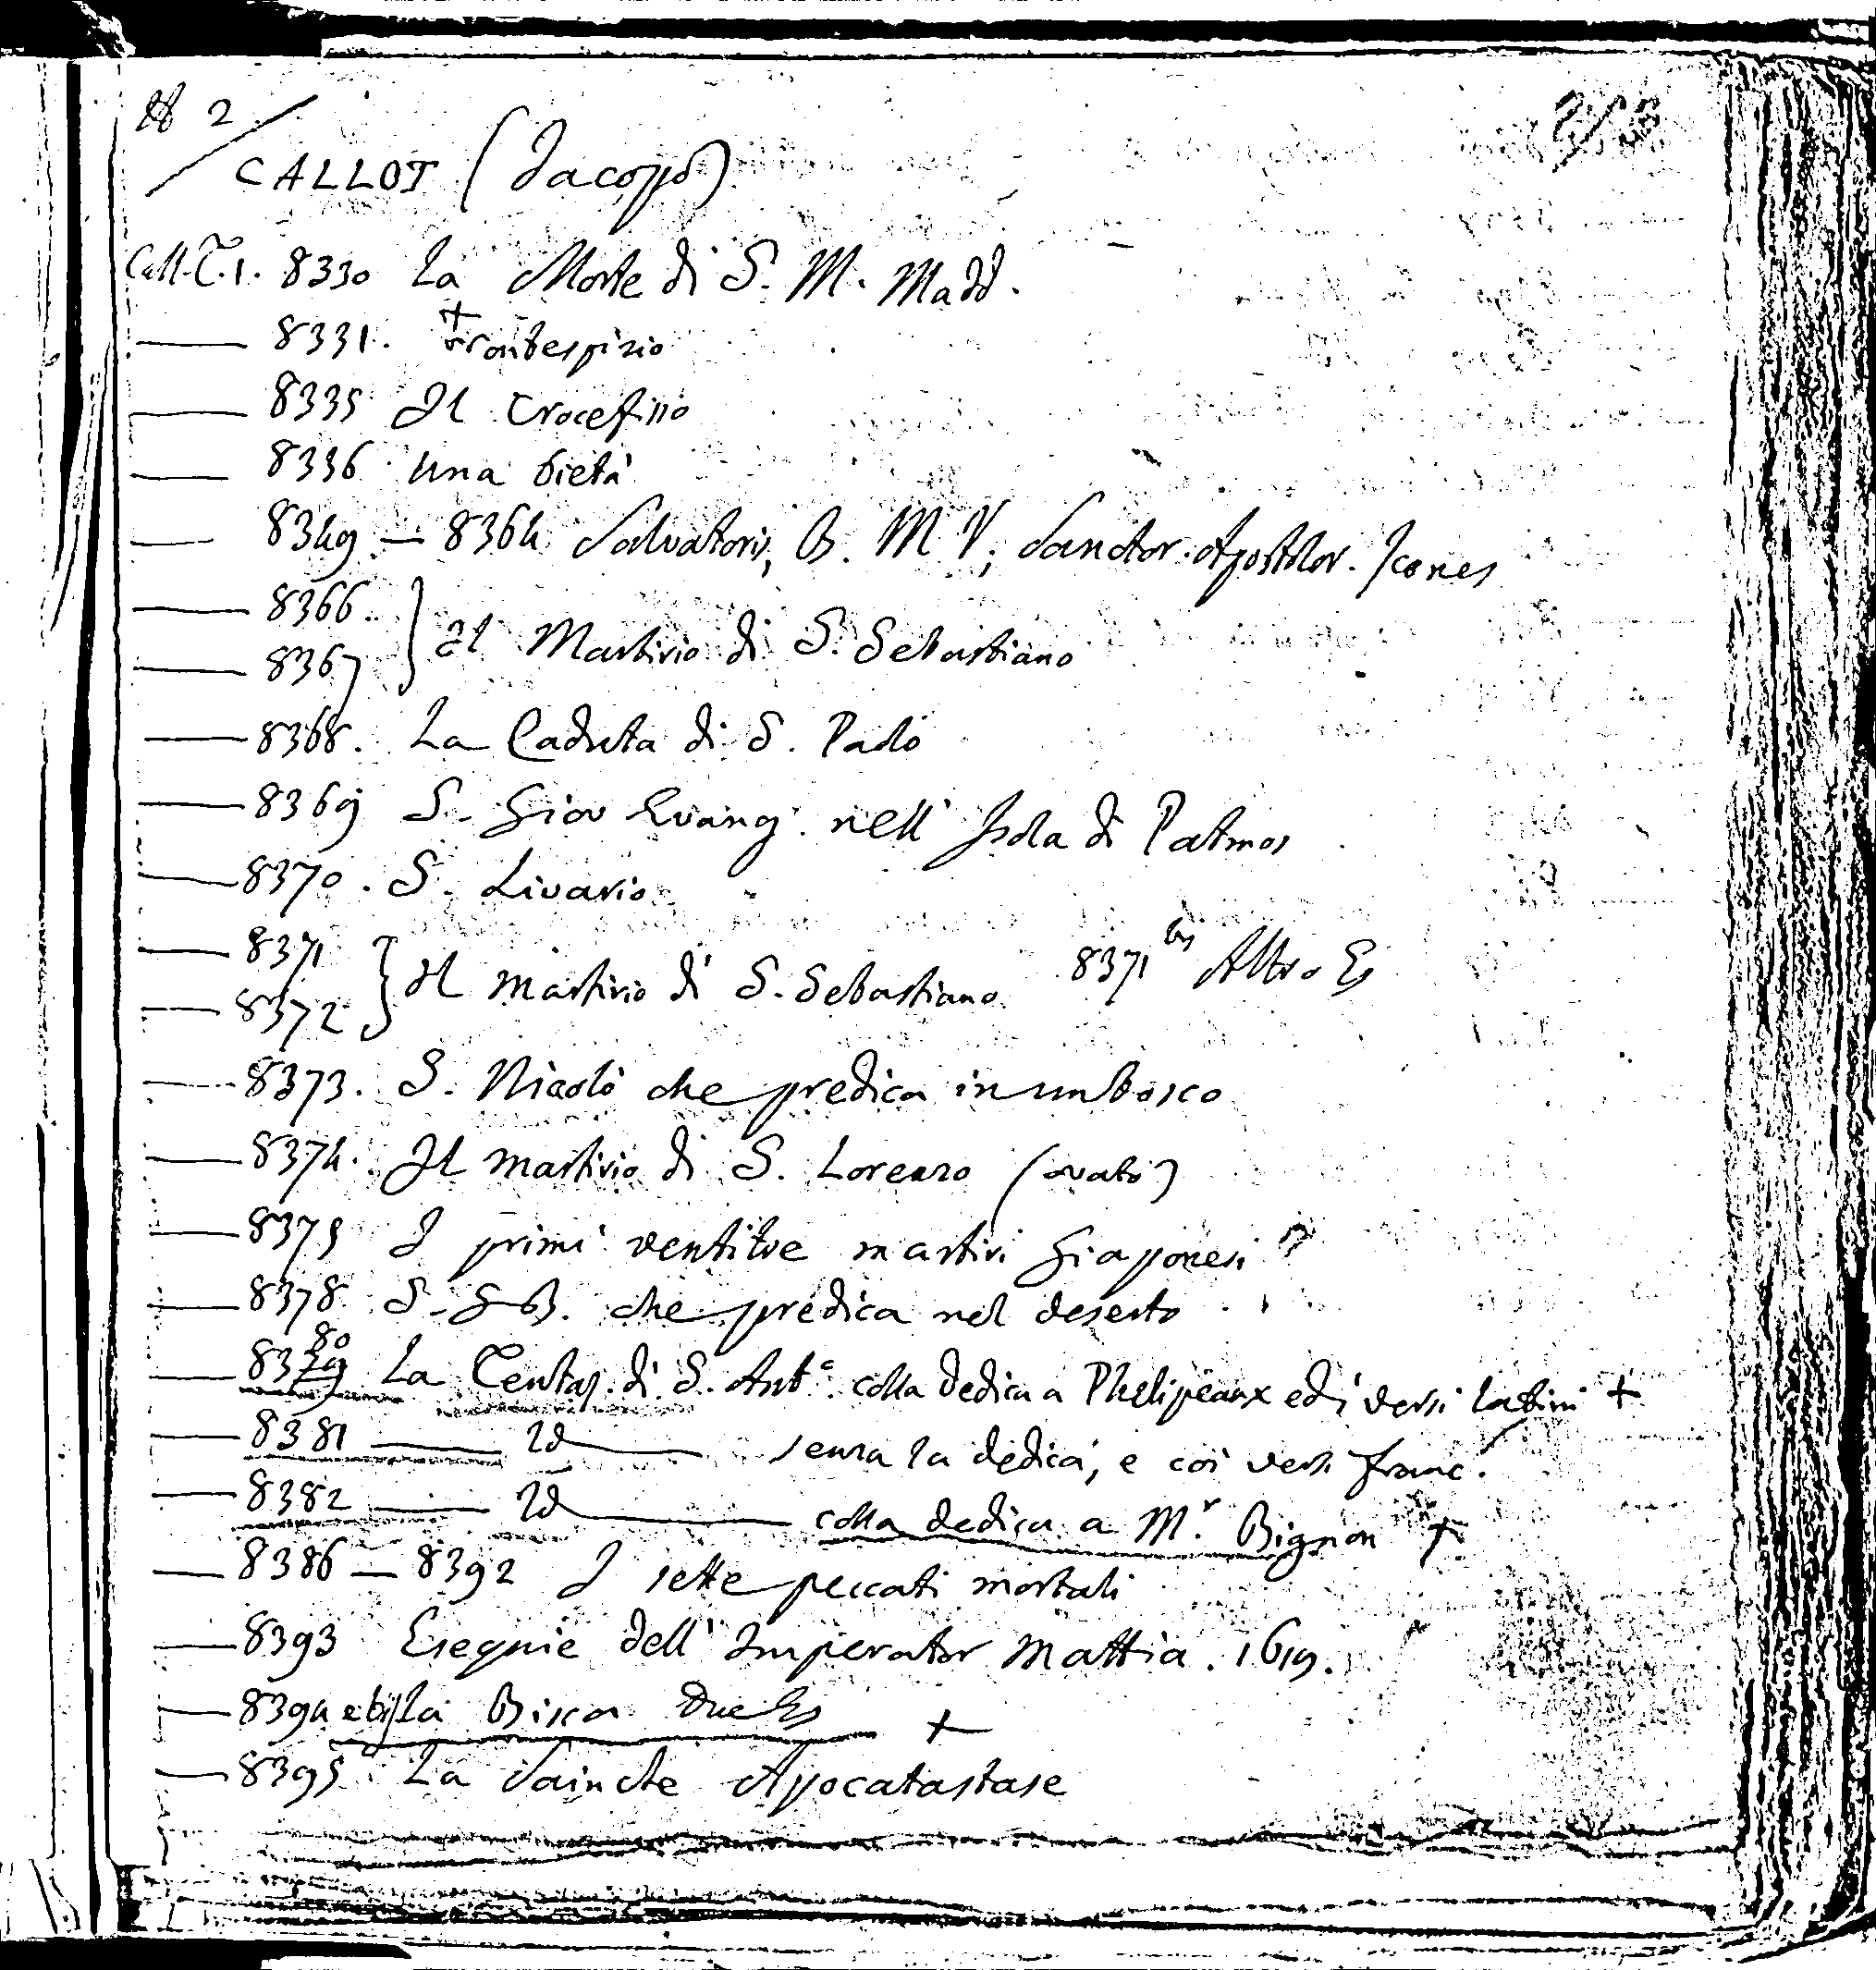 2
CALLOT (Jacopo)
Call. T. 1. 8330 La Morte di S. M. Madd.
8331. Frontespizio
8335 Il Crocefisso
8336 Una Pietà
8349 — 8364 Salvatoris, B. M V, Sanctor. Apostolor. Icones
8366
8367 } Il Martirio di S. Sebastiano
8368. La Caduta di S. Paolo
8369 S. Giov Evang. nell' Isola di Patmos
8370. S. Livario
8371
8372 } Il martirio di S. Sebastiano 8371 bis Altro Es
8373. S. Nicolò che predica in un bosco
8374. Il martirio di S. Lorenzo (ovato)
8375 I primi ventitre martiri Giaponesi
8378 S. G B. che predica nel deserto
80
8379 La Tentaz. di S. Ant° colla dedica a Phelipeaux ed i versi latini +
8381 — Id — senza la dedica, e coi versi franc.
8382 — Id — colla dedica a M.r Bignon +
8386 — 8392 I sette peccati mortali
8393 Esequie dell' Imperator Mattia. 1619.
8394 e bis La Bisca due Es +
8395 La Saincte Apocatastase